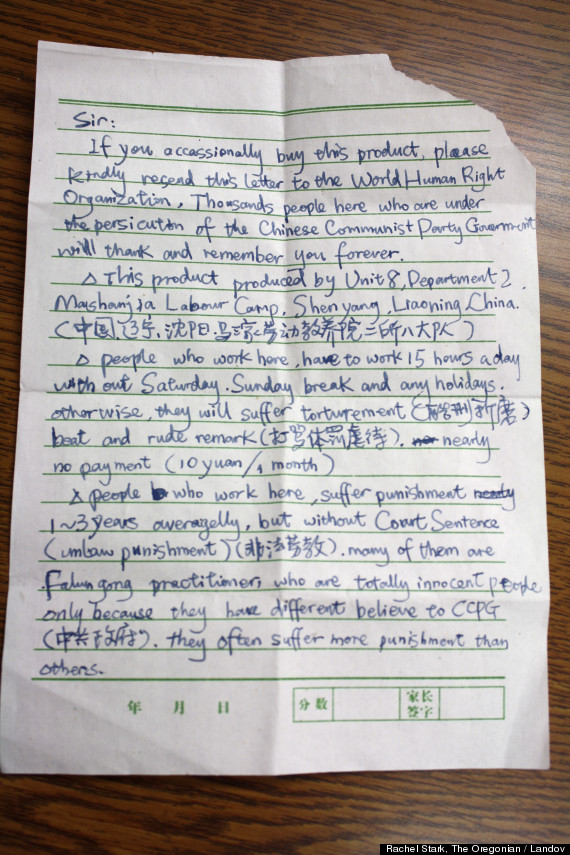 Sir:
If you occassionally buy this product, please
kindly resend this letter to the World Human Right
Organization, Thousands people here who are under
the persicution of the Chinese Communist Party Government
will thank and remember you forever.
△ This product produced by Unit 8, Department 2,
Mashanjia Labour Camp, Shenyang, Liaoning, China.
(中国,辽宁,沈阳,马三家劳动教养院二所八大队)
△ people who work here, have to work 15 hours a day
with out Saturday. Sunday break and any holidays.
otherwise, they will suffer torturement (酷刑折磨)
beat and rude remark (打骂体罚虐待). nearly
no payment (10 yuan/1 month)
△ people who work here, suffer punishment
1~3 years averagelly, but without Court Sentence
(unlaw punishment) (非法劳教). many of them are
Falun gong practitioner, who are totally innocent people
only because they have different believe to CCPG
(中共政府). they often suffer more punishment than
others.
年 月 日 分数 家长签字
Rachel Stark, The Oregonian / Landov